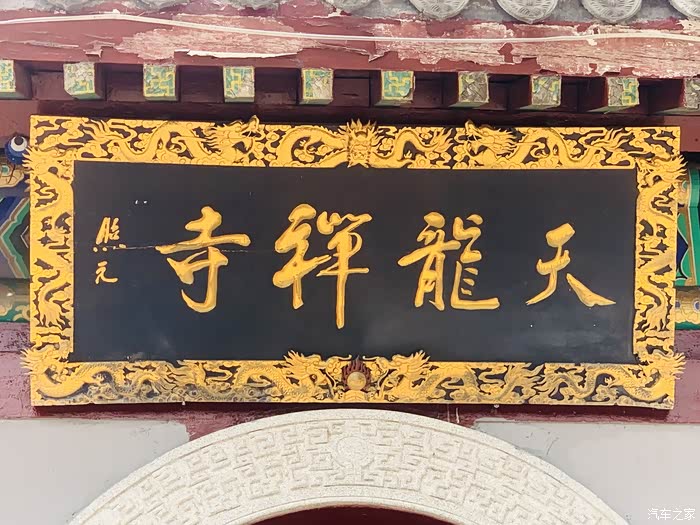 天龍禪寺
熙元
汽车之家